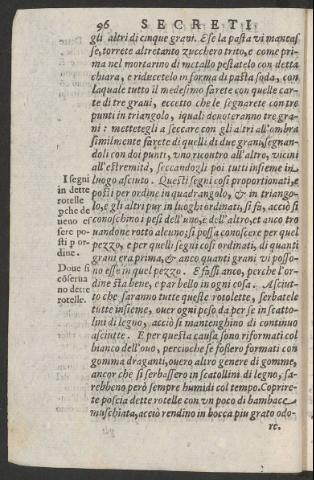 96 SECRETI
gli altri di cinque grani. E se la pasta vi mancas
se, torrete altretanto zucchero trito, e come pri-
ma nel mortarino di metallo pestatelo con detta
chiara, e riducetelo in forma di pasta soda, con
laquale tutto il medesimo farete con quelle car-
te di tre grani, eccetto che le segnarete con tre
punti in triangolo, iquali denoteranno tre gra-
ni: mettetegli a seccare con gli altri all'ombra
similmente farete di quelli di due grani, segnan-
doli con doi punti, vno ricontro all'altro, vicini
all'estremità, seccandogli poi tutti insieme in
luogo asciuto. Questi segni cosi proportionati, e
posti per ordine in quadrangolo, & in triango-
lo, e gli altri pur in luoghi ordinati, si fa, acciò si
conoschino i pesi dell'vno, e dell'altro, et anco tro
uandone rotto alcuno, si possa conoscere per quel
pezzo, e per quelli segni cosi ordinati, di quanti
grani era prima, & anco quanti grani vi posso-
no esse in quel pezzo. E fassi anco, perche l'or-
dine sta bene, e par bello in ogni cosa. Asciut-
to che saranno tutte queste rotolette, serbatele
tutte insieme, ouer ogni peso da per se in scatto-
lini di legno, acciò si mantenghino di continuo
asciutte. E per questa causa sono riformati col
bianco dell'ouo, percioche se fossero formati con
gomma draganti, ouero altro genere di gomme,
ancor che si serbassero in scatollini di legno, sa-
rebbeno però sempre humidi col tempo. Coprire-
te poscia dette rotelle con vn poco di bambace
muschiata, acciò rendino in bocca piu grato odo-
re.
I segni
in dette
rotelle
ꝑche de
ueno es
sere po-
sti p or-
dine.
Doue si
cōserua
no dette
rotelle.